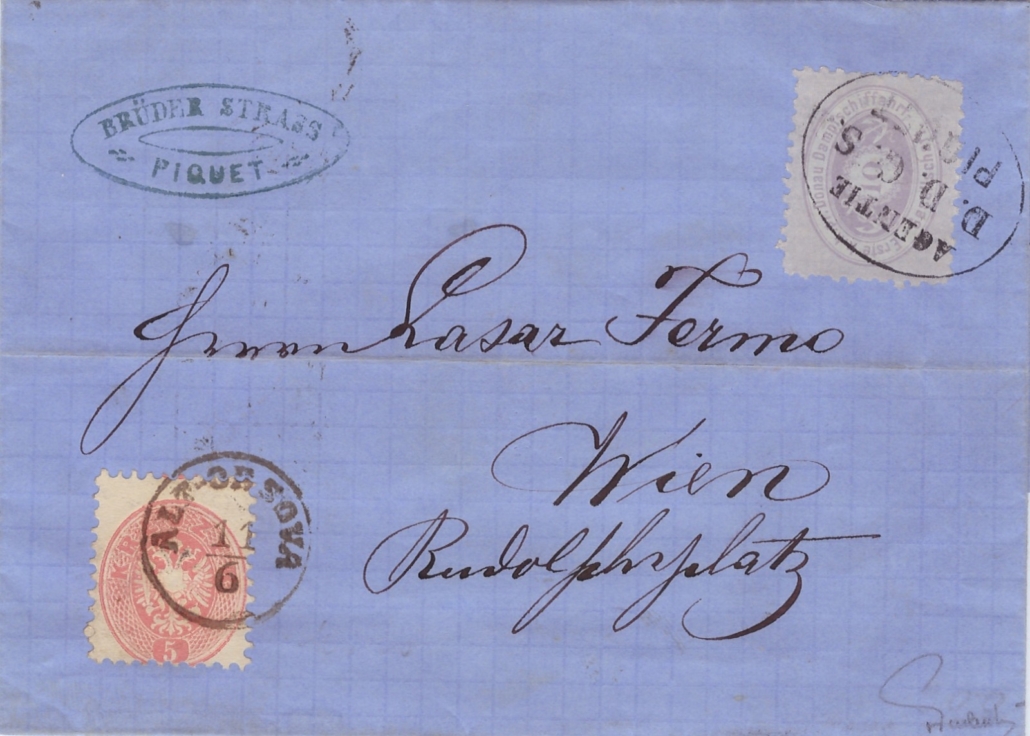 BRÜDER STRASS
PIQUET
Erste Donau Dampfschiffahrt
10
D. D. S. G.
AGENTIE
Herrn Lasar Fermo
Wien
Rudolphsplatz
ALT-ORSOVA
11
6
5